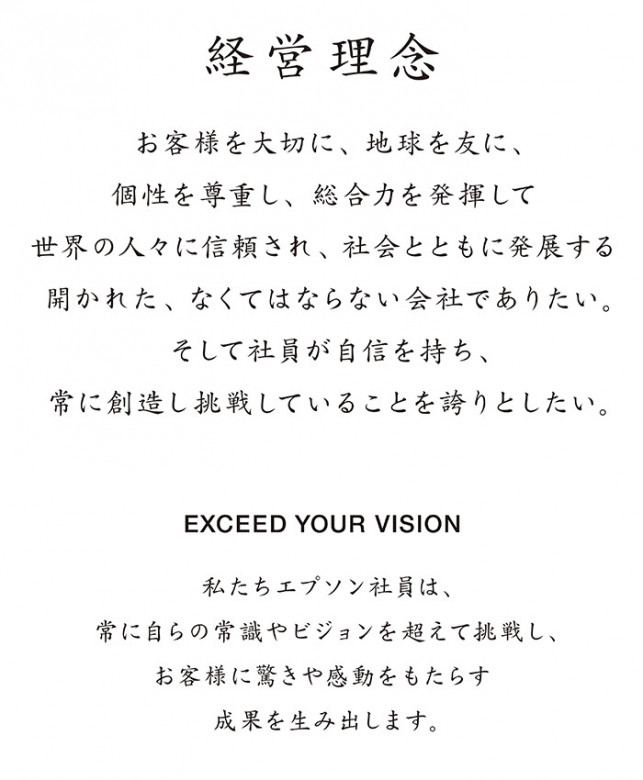 経営理念
お客様を大切に、地球を友に、
個性を尊重し、総合力を発揮して
世界の人々に信頼され、社会とともに発展する
開かれた、なくてはならない会社でありたい。
そして社員が自信を持ち、
常に創造し挑戦していることを誇りとしたい。
EXCEED YOUR VISION
私たちエプソン社員は、
常に自らの常識やビジョンを超えて挑戦し、
お客様に驚きや感動をもたらす
成果を生み出します。